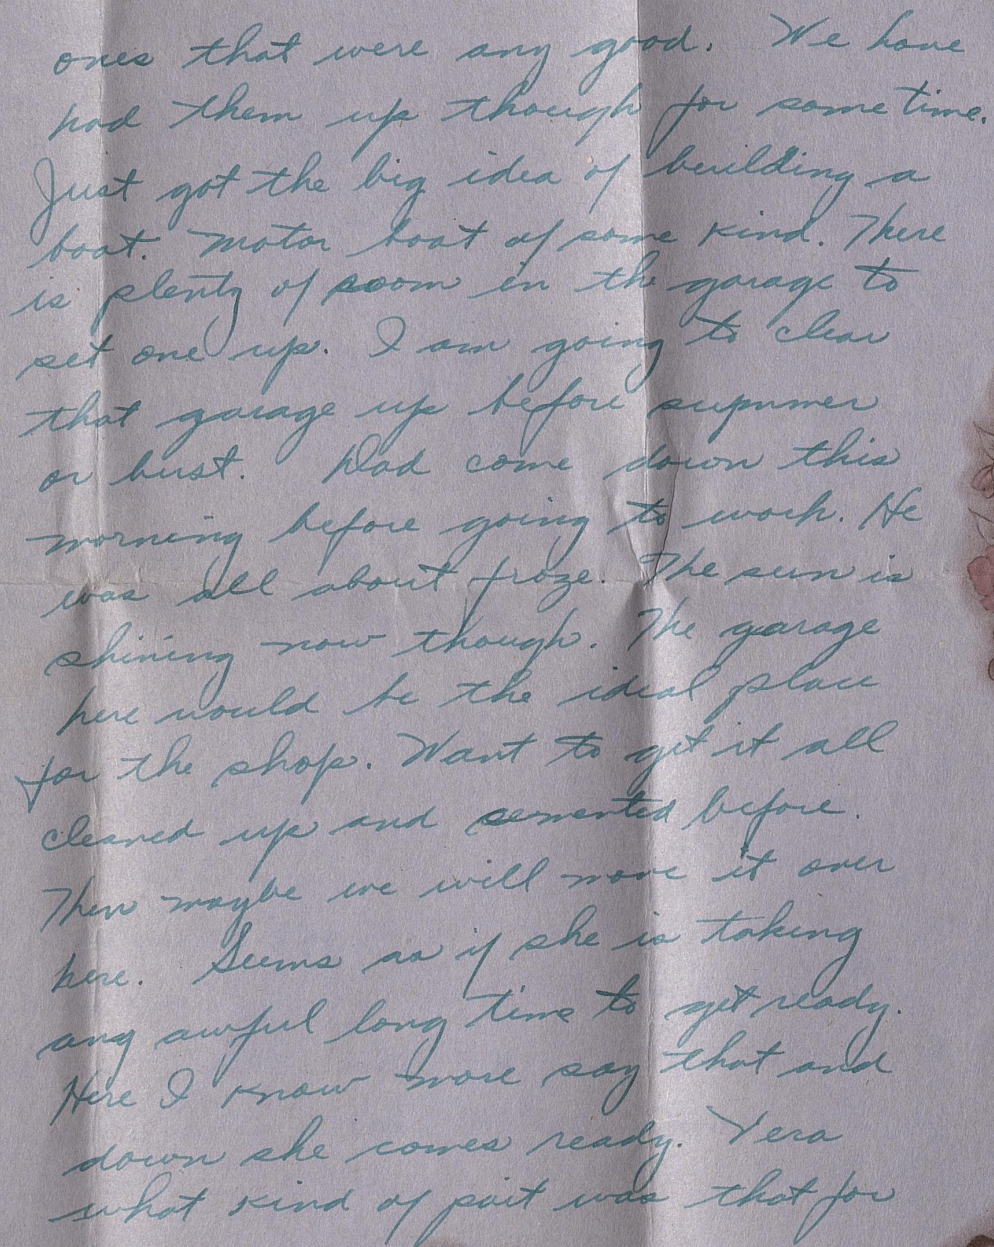 ones that were any good. We have
had them up though for some time.
Just got the big idea of building a
boat. Motor boat of some kind. There
is plenty of room in the garage to
set one up. I am going to clear
that garage up before summer
or bust. Dad come down this
morning before going to work. He
was all about froze. The sun is
shining now though. The garage
here would be the ideal place
for the shop. Want to get it all
cleaned up and semented before.
Then maybe we will move it over
here. Seems as if she is taking
ang awful long time to get ready.
Here I know more say that and
down she comes ready. Vera
what kind of part was that for